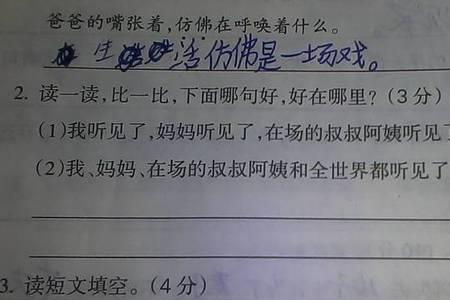 爸爸的嘴张着,仿佛在呼唤着什么。
生活仿佛是一场戏。
2. 读一读,比一比,下面哪句好,好在哪里?(3分)
(1)我听见了,妈妈听见了,在场的叔叔阿姨听见
(2)我、妈妈、在场的叔叔阿姨和全世界都听见了
3. 读短文填空。(4分)